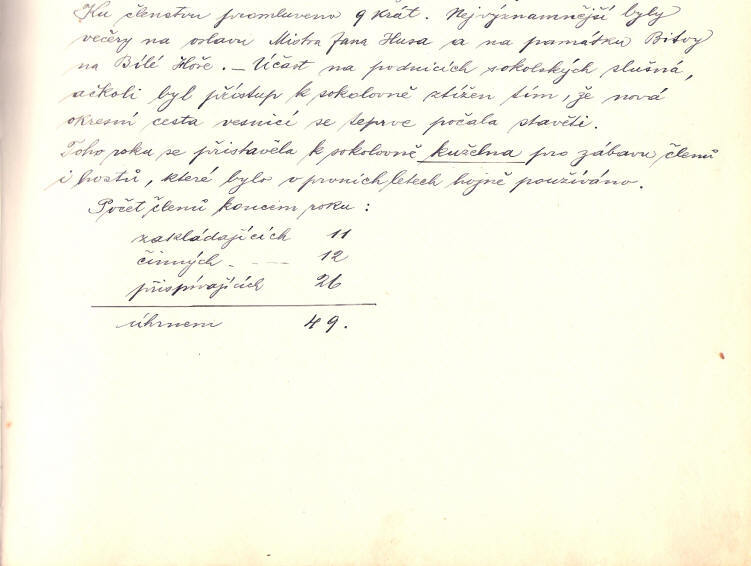 Ku členstvu promluveno 9 krát. Nejvýznamnější byly
večery na oslavu Mistra Jana Husa a na památku Bitvy
na Bílé Hoře. – Účast na podnicích sokolských slušná,
ačkoli byl přístup k sokolovně ztížen tím, že nová
okresní cesta vesnicí se teprve počala stavěti.
Toho roku se přistavěla k sokolovně kuželna pro zábavu členů
i hostů, které bylo v prvních letech hojně používáno.
Počet členů koncem roku :
zakládajících 11
činných - — 12
přispívajících 26
úhrnem 49.